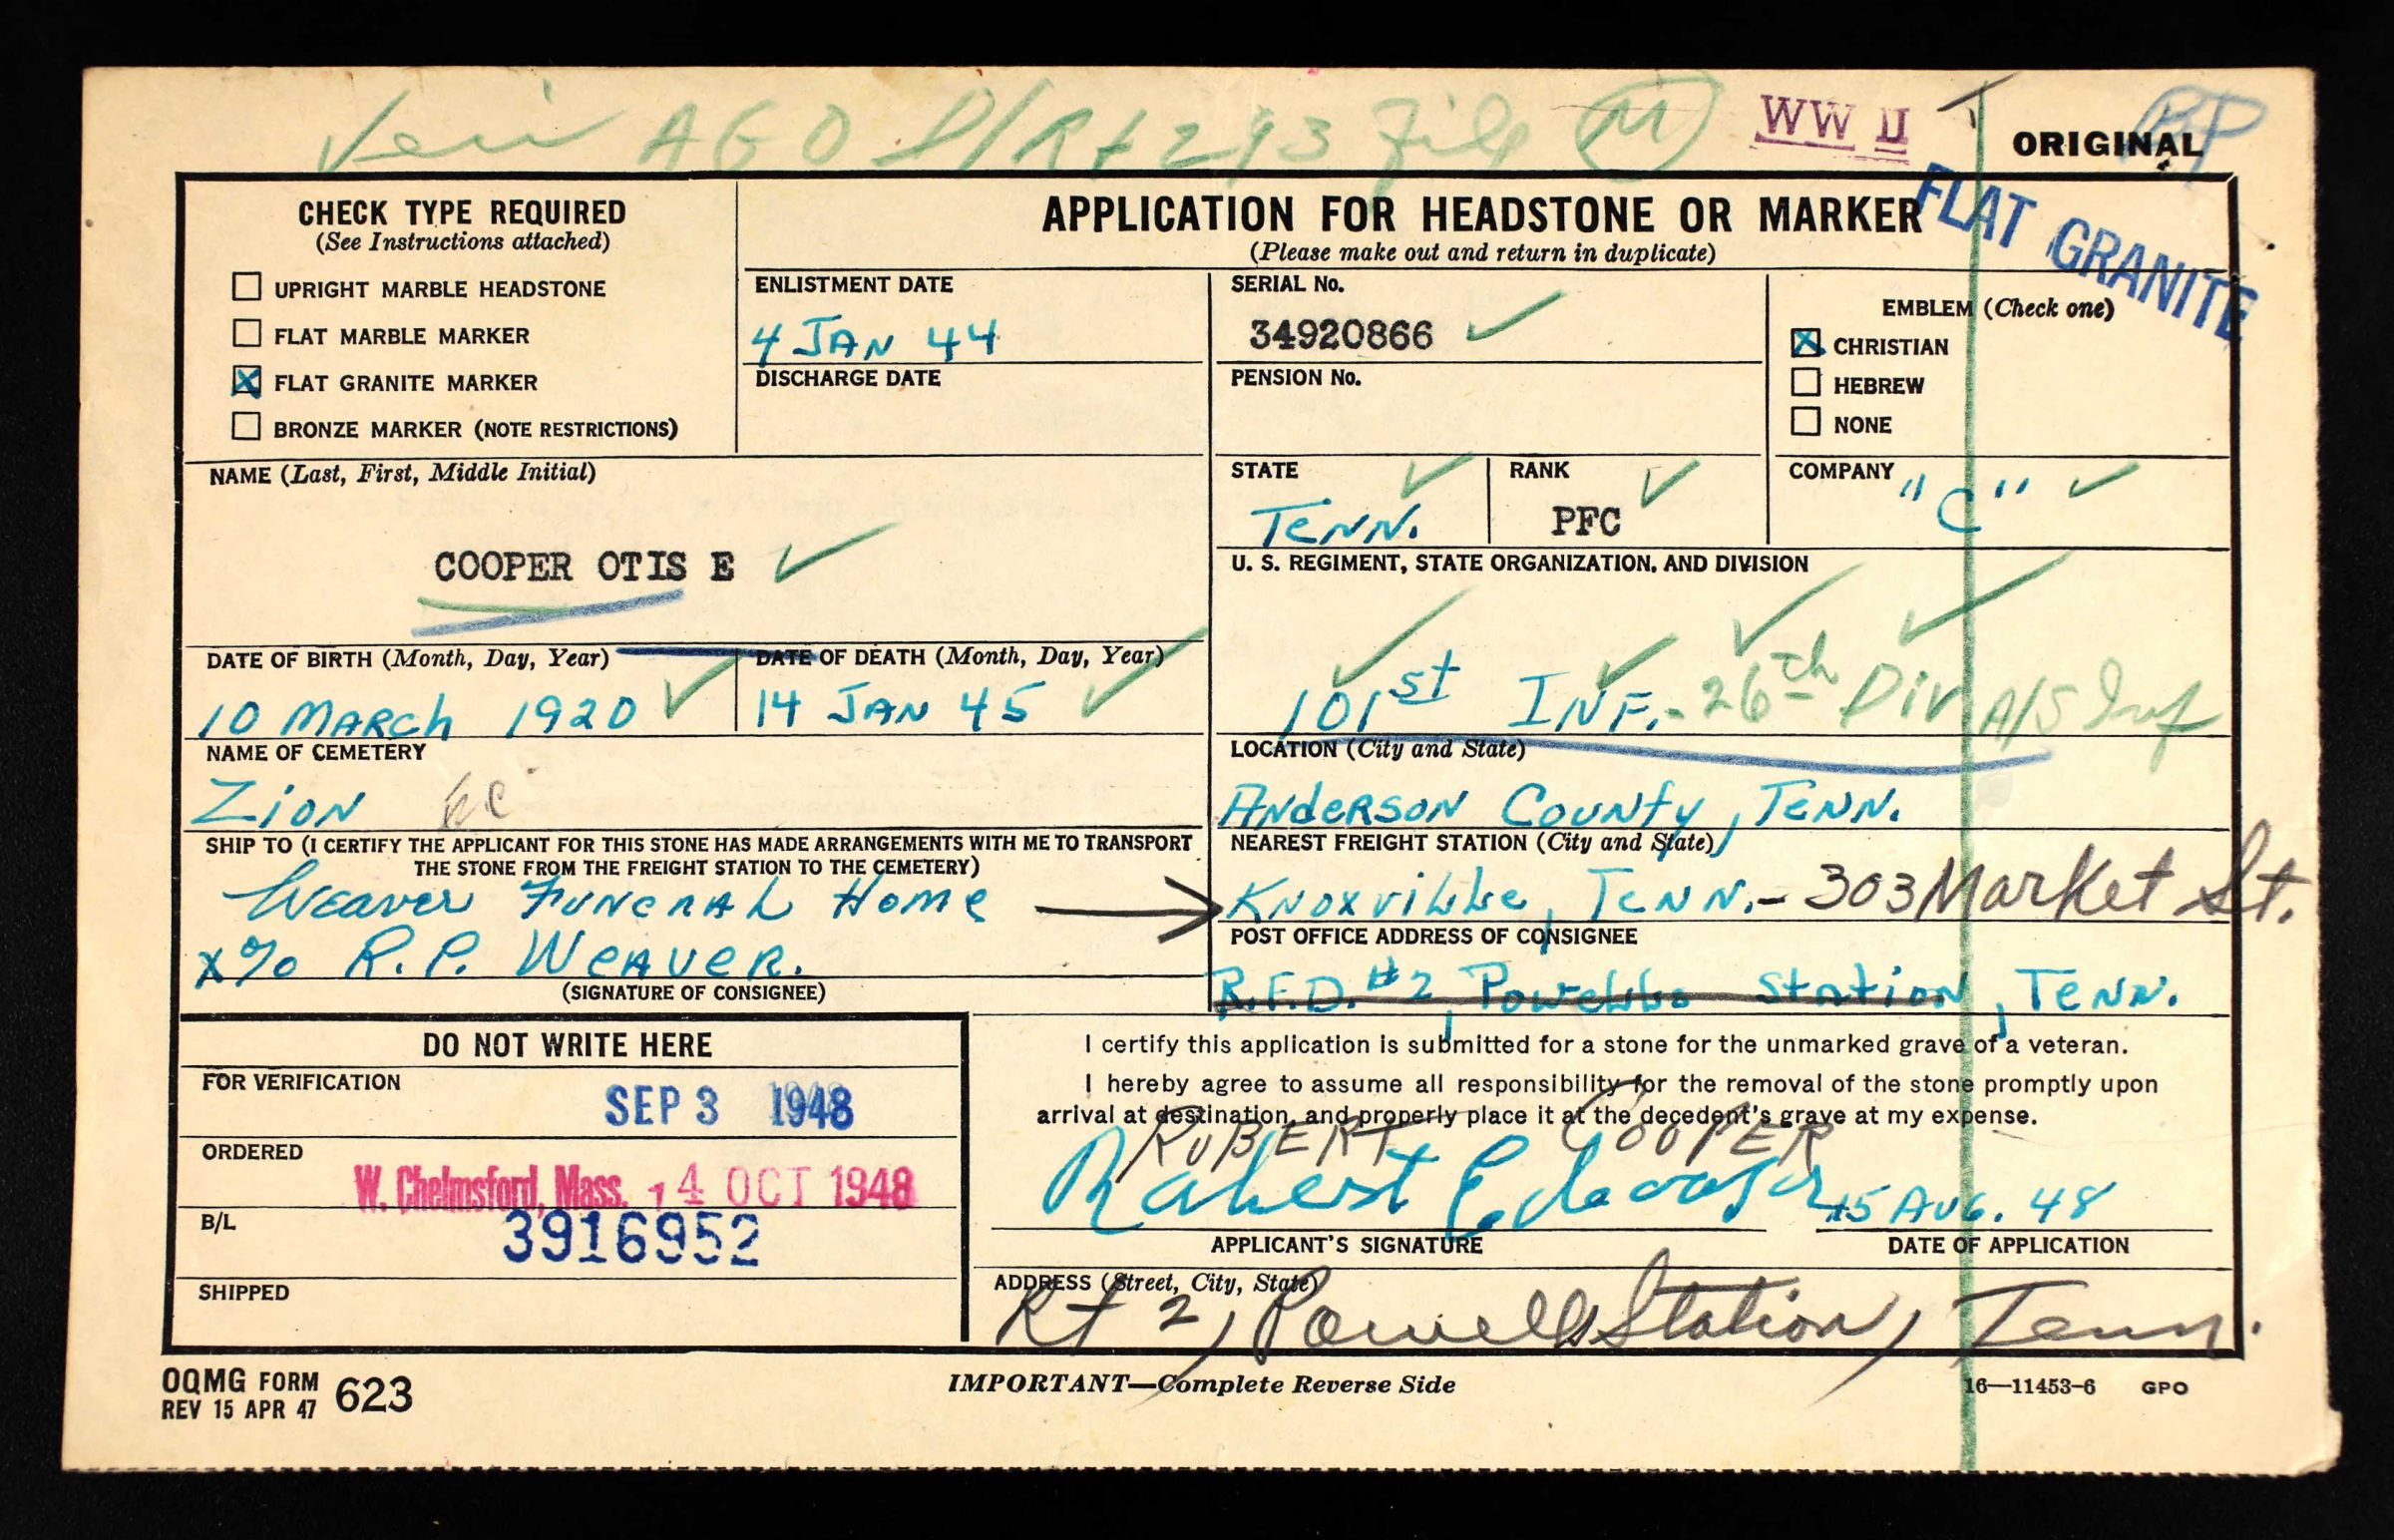 Veri AGO D/R + 293 File M WW II BP
ORIGINAL
FLAT GRANITE
CHECK TYPE REQUIRED
(See Instructions attached)
UPRIGHT MARBLE HEADSTONE
FLAT MARBLE MARKER
X FLAT GRANITE MARKER
BRONZE MARKER (NOTE RESTRICTIONS)
APPLICATION FOR HEADSTONE OR MARKER
(Please make out and return in duplicate)
ENLISTMENT DATE
4 JAN 44
DISCHARGE DATE
SERIAL No.
34920866
PENSION No.
EMBLEM (Check one)
X CHRISTIAN
HEBREW
NONE
NAME (Last, First, Middle Initial)
COOPER OTIS E
STATE
TENN.
RANK
PFC
COMPANY "C"
U. S. REGIMENT, STATE ORGANIZATION, AND DIVISION
101st INF.- 26th Div A/S Inf
DATE OF BIRTH (Month, Day, Year)
10 MARCh 1920
DATE OF DEATH (Month, Day, Year)
14 JAN 45
NAME OF CEMETERY
Zion
LOCATION (City and State)
Anderson County, Tenn.
SHIP TO (I CERTIFY THE APPLICANT FOR THIS STONE HAS MADE ARRANGEMENTS WITH ME TO TRANSPORT
THE STONE FROM THE FREIGHT STATION TO THE CEMETERY)
Weaver Funeral Home
x % R. P. Weaver.
(SIGNATURE OF CONSIGNEE)
NEAREST FREIGHT STATION (City and State)
Knoxville, Tenn. - 303 Market St.
POST OFFICE ADDRESS OF CONSIGNEE
R.F.D. #2, Powells Station, Tenn.
DO NOT WRITE HERE
FOR VERIFICATION
SEP 3 1948
ORDERED
W. Chelmsford, Mass. 14 OCT 1948
B/L
3916952
SHIPPED
I certify this application is submitted for a stone for the unmarked grave of a veteran.
I hereby agree to assume all responsibility for the removal of the stone promptly upon
arrival at destination, and properly place it at the decedent's grave at my expense.
ROBERT COOPER
15 AUG. 48
APPLICANT'S SIGNATURE
DATE OF APPLICATION
ADDRESS (Street, City, State)
Rt 2, Powells Station, Tenn.
OQMG FORM 623
REV 15 APR 47
IMPORTANT—Complete Reverse Side
16—11453-6 GPO